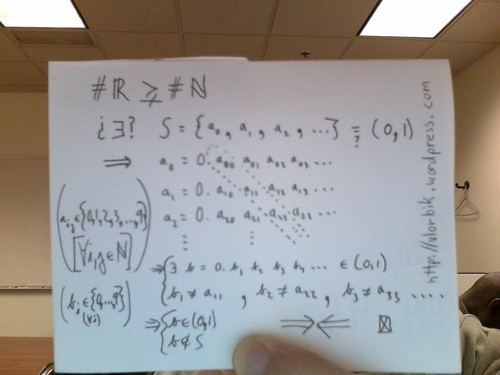 #ℝ ≩ #ℕ
¿∃? S = {a₀, a₁, a₂, ...} =? (0,1)
⇒ a₀ = 0. a₀₀ a₀₁ a₀₂ a₀₃ ...
a₁ = 0. a₁₀ a₁₁ a₁₂ a₁₃ ...
a₂ = 0. a₂₀ a₂₁ a₂₂ a₂₃ ...
⋮ ⋮
(aᵢⱼ ∈ {0,1,2,3,...,9}
[∀i,j ∈ ℕ])
⇒ {∃ b = 0. b₁ b₂ b₃ b₄ ... ∈ (0,1)
b₁ ≠ a₁₁, b₂ ≠ a₂₂, b₃ ≠ a₃₃ ....
(bⱼ ∈ {0,...,9}
(∀j))
⇒ {b ∈ (0,1)
b ∉ S
⇒⇐ ☒
http://vlorbik.wordpress.com